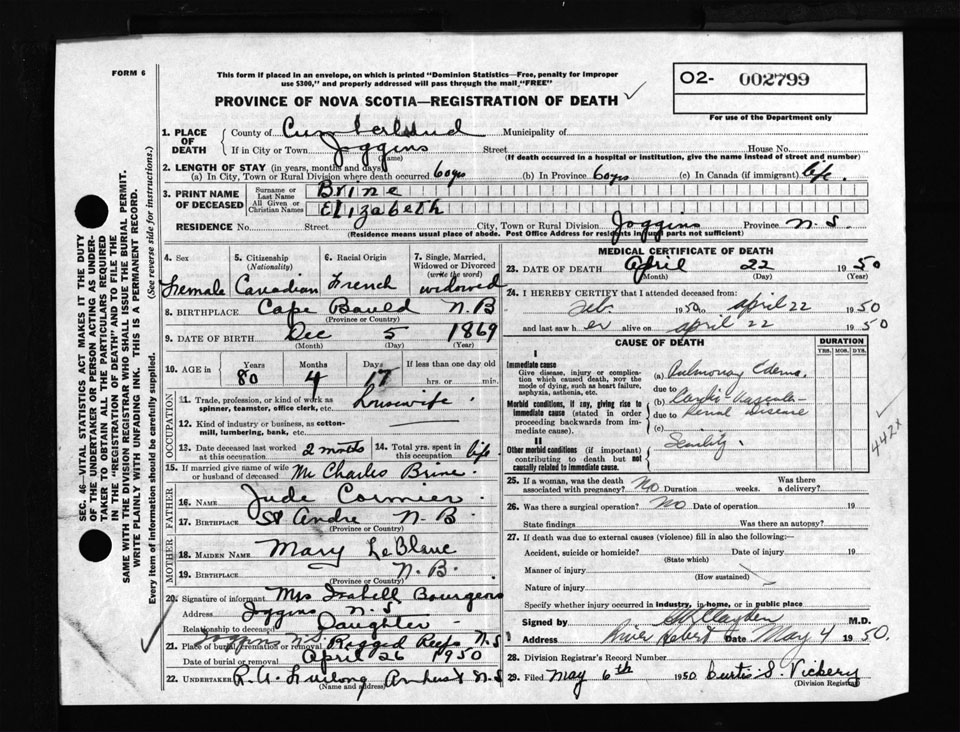 FORM 6
This form if placed in an envelope, on which is printed "Dominion Statistics—Free, penalty for improper
use $300," and properly addressed will pass through the mail "FREE"
PROVINCE OF NOVA SCOTIA—REGISTRATION OF DEATH
O2- 002799
For use of the Department only
1. PLACE OF DEATH
County of Cumberland Municipality of
If in City or Town Joggins Street House No.
(Name) (If death occurred in a hospital or institution, give the name instead of street and number)
2. LENGTH OF STAY (in years, months and days)
(a) In City, Town or Rural Division where death occurred 60 yrs (b) In Province 60 yrs (c) In Canada (if immigrant) life.
3. PRINT NAME OF DECEASED
Surname or Last Name Brine
All Given or Christian Names Elizabeth
RESIDENCE No. Street City, Town or Rural Division Joggins Province N.S.
(Residence means usual place of abode. Post Office Address for residents in rural parts not sufficient)
4. Sex Female
5. Citizenship (Nationality) Canadian
6. Racial Origin French
7. Single, Married, Widowed or Divorced (write the word) widowed
8. BIRTHPLACE Cape Bauld N.B
(Province or Country)
9. DATE OF BIRTH Dec 5 1869
(Month) (Day) (Year)
10. AGE in Years 80 Months 4 Days 17 If less than one day old
hrs. or min.
OCCUPATION
11. Trade, profession, or kind of work as spinner, teamster, office clerk, etc. Housewife
12. Kind of industry or business, as cotton-mill, lumbering, bank, etc.
13. Date deceased last worked at this occupation 2 months
14. Total yrs. spent in this occupation life
15. If married give name of wife or husband of deceased Mr Charles Brine.
FATHER
16. NAME Jude Cormier
17. BIRTHPLACE St Andre N.B.
(Province or Country)
MOTHER
18. MAIDEN NAME Mary LeBlanc
19. BIRTHPLACE N.B.
(Province or Country)
20. Signature of informant Mrs Isabell Bourgeois
Address Joggins N.S
Relationship to deceased Daughter
21. Place of burial, cremation or removal Joggins N.S. Ragged Reefs N.S
Date of burial or removal April 26 1950
22. UNDERTAKER R. A. Furlong Amherst N.S
(Name and address)
MEDICAL CERTIFICATE OF DEATH
23. DATE OF DEATH April 22 1950
(Month) (Day) (Year)
24. I HEREBY CERTIFY that I attended deceased from:
Feb. 1950 to April 22 1950
and last saw her alive on April 22 1950
CAUSE OF DEATH
DURATION
YRS. MOS. DYS.
I
Immediate cause
Give disease, injury or complication which caused death, not the mode of dying, such as heart failure, asphyxia, asthenia, etc.
(a) Pulmonary Edema.
due to
Morbid conditions, if any, giving rise to immediate cause (stated in order proceeding backwards from immediate cause).
(b) Cardio Vascular
due to Renal Disease
(c)
II
Other morbid conditions (if important) contributing to death but not causally related to immediate cause.
Senility.
442x
25. If a woman, was the death associated with pregnancy? No Duration weeks. Was there a delivery?
26. Was there a surgical operation? No Date of operation 19
State findings Was there an autopsy?
27. If death was due to external causes (violence) fill in also the following:—
Accident, suicide or homicide? Date of injury 19
(State which)
Manner of injury
(How sustained)
Nature of injury
Specify whether injury occurred in industry, in home, or in public place
Signed by Clayden M.D.
Address River Hebert Date May 4 1950.
28. Division Registrar's Record Number
29. Filed May 6th 1950 Curtis S. Vickery
(Division Registrar)
SEC. 46—VITAL STATISTICS ACT MAKES IT THE DUTY
OF THE UNDERTAKER OR PERSON ACTING AS UNDER-
TAKER TO OBTAIN ALL THE PARTICULARS REQUIRED
IN THE "REGISTRATION OF DEATH" AND TO FILE THE
SAME WITH THE DIVISION REGISTRAR WHO SHALL ISSUE THE BURIAL PERMIT.
WRITE PLAINLY WITH UNFADING INK. THIS IS A PERMANENT RECORD.
Every item of information should be carefully supplied. (See reverse side for instructions.)